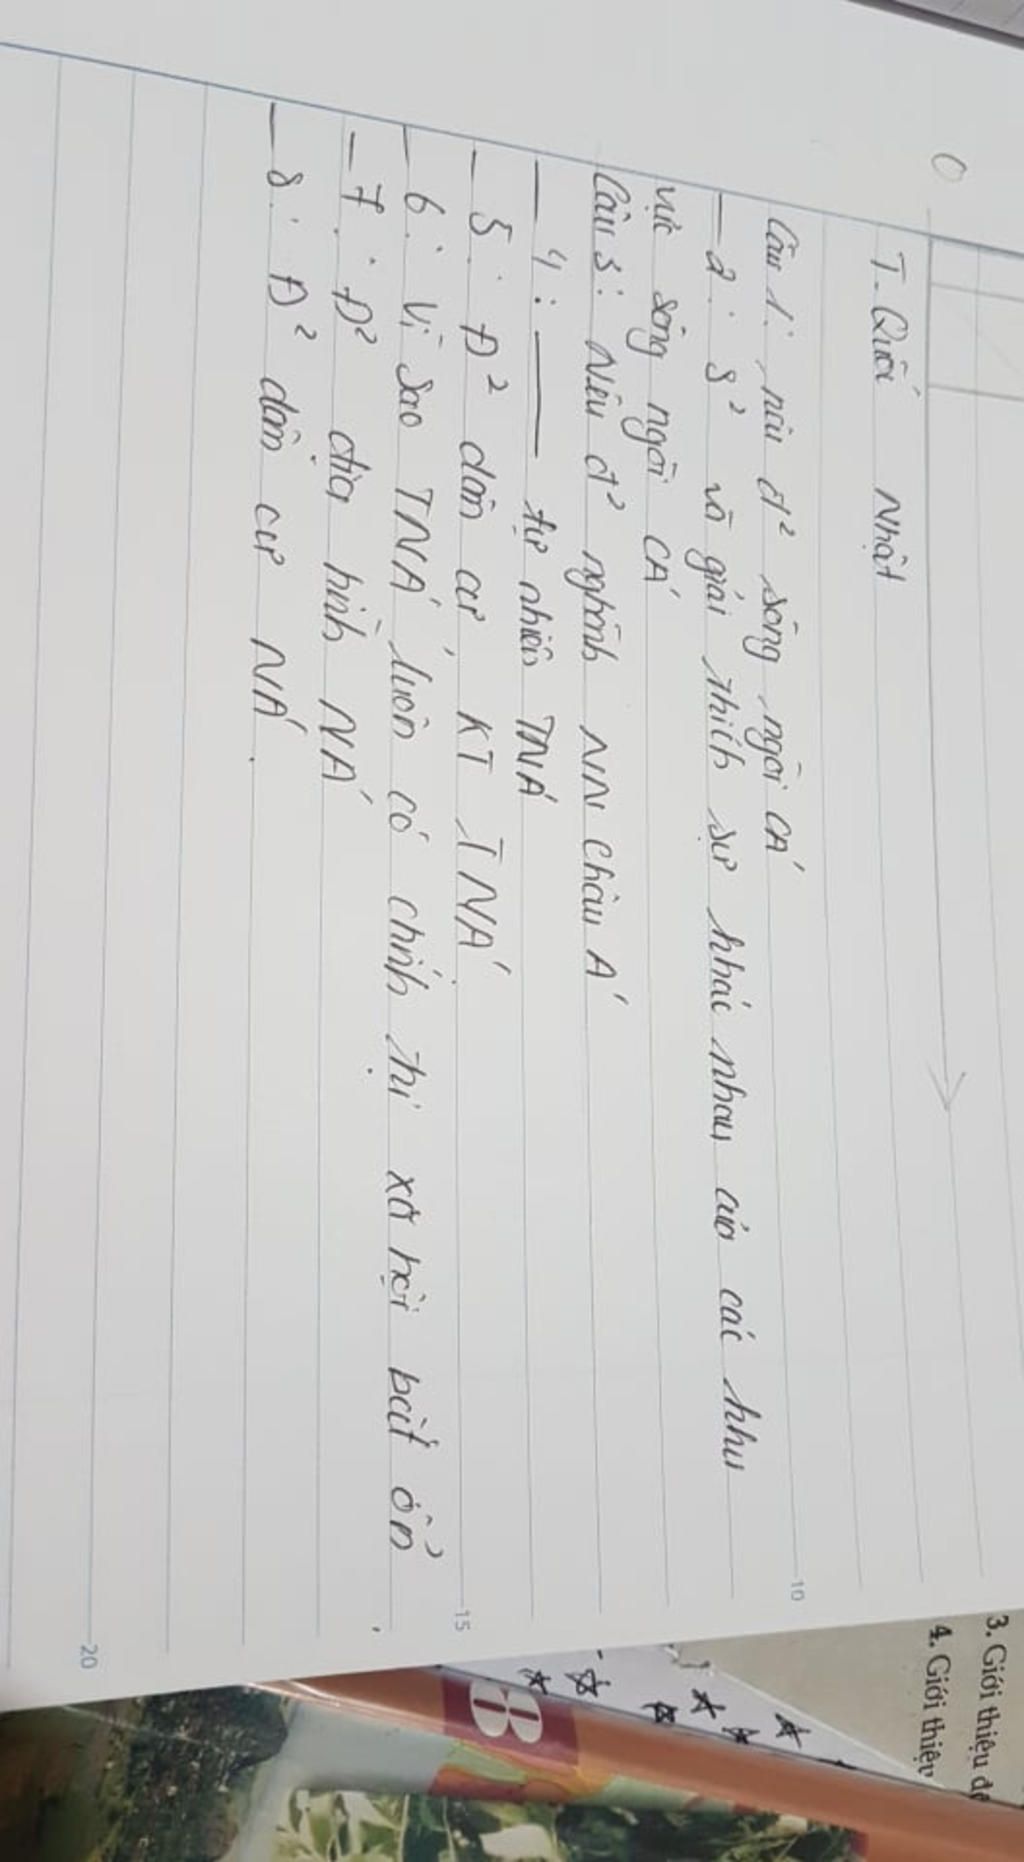 T. Quốc Nhật
Câu 1: nêu đ² sông ngòi CÁ
— 2: s² và giải thích sự khác nhau của các khu
vực sông ngòi CÁ
Câu 3: Nêu đ² nghành NN Châu Á
— 4: —— tự nhiên TNÁ
— 5: Đ² dân cư, KT TNÁ
— 6: Vì sao TNÁ luôn có chính thị xã hội bất ổn
— 7: Đ² địa hình NÁ
— 8: Đ² dân cư NÁ.
10
15
20
3. Giới thiệu
4. Giới thiệu
8